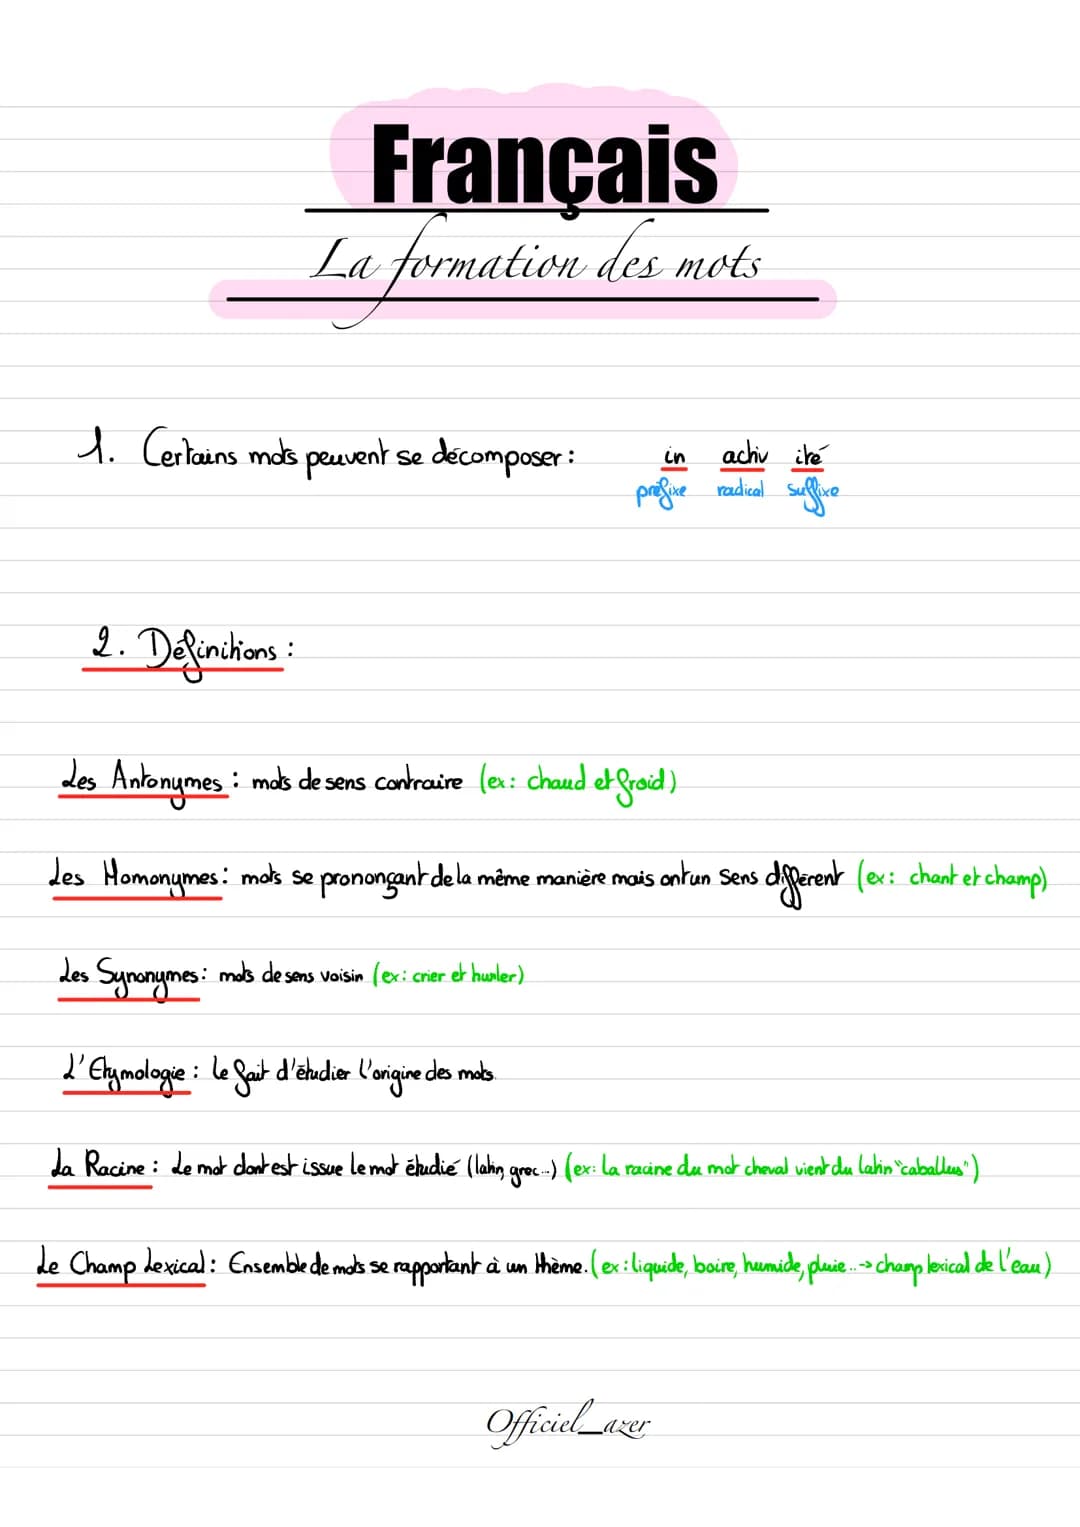 Français
La formation des mots
1. Certains mots peuvent se décomposer : in activ ité
préfixe radical suffixe
2. Définitions :
Les Antonymes : mots de sens contraire (ex : chaud et froid)
Les Homonymes : mots se prononçant de la même manière mais ont un sens différent (ex : chant et champ)
Les Synonymes : mots de sens voisin (ex : crier et hurler)
L'Etymologie : le fait d'étudier l'origine des mots.
La Racine : Le mot dont est issue le mot étudié (latin, grec...) (ex : La racine du mot cheval vient du latin "caballus")
Le Champ Lexical : Ensemble de mots se rapportant à un thème. (ex : liquide, boire, humide, pluie...-> champ lexical de l'eau)
Officiel_azer